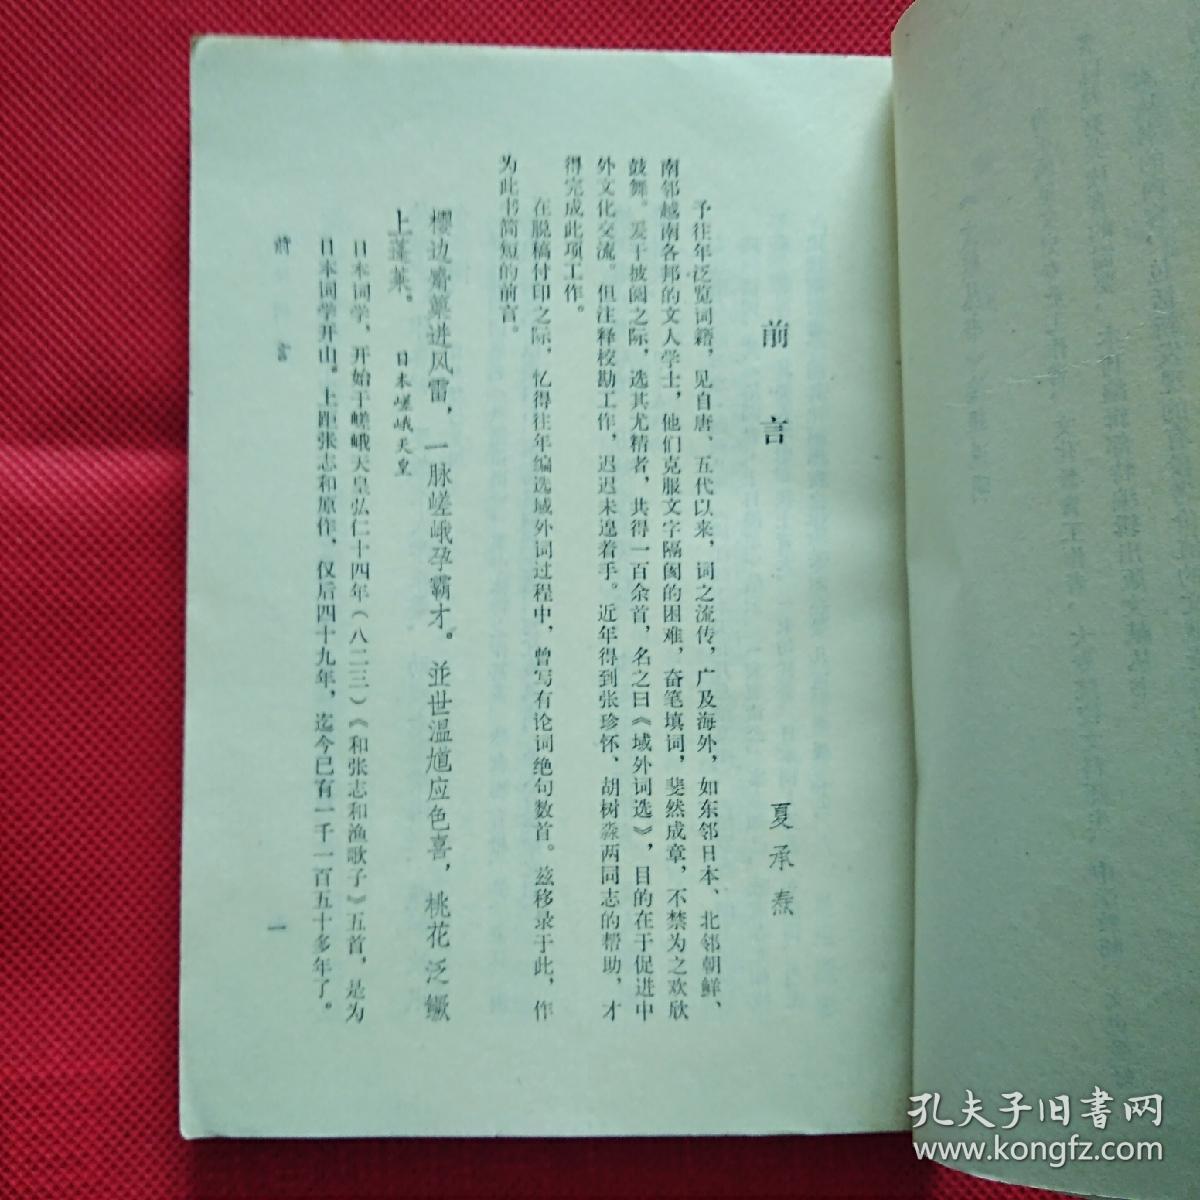 前言
夏承焘
予往年泛览词籍，见自唐、五代以来，词之流传，广及海外，如东邻日本、北邻朝鲜、
南邻越南各邦的文人学士，他们克服文字隔阂的困难，奋笔填词，斐然成章，不禁为之欢欣
鼓舞。爰于披阅之际，选其尤精者，共得一百余首，名之曰《域外词选》，目的在于促进中
外文化交流。但注释校勘工作，迟迟未遑着手。近年得到张珍怀、胡树淼两同志的帮助，才
得完成此项工作。
在脱稿付印之际，忆得往年编选域外词过程中，曾写有论词绝句数首。兹移录于此，作
为此书简短的前言。
樱边觱篥迸风雷，一脉嵯峨孕霸才。並世温馗应色喜，桃花泛鳜
上蓬莱。 日本嵯峨天皇
日本词学，开始于嵯峨天皇弘仁十四年（八二三）《和张志和渔歌子》五首，是为
日本词学开山。上距张志和原作，仅后四十九年，迄今已有一千一百五十多年了。
前言
一
孔夫子旧书网
www.kongfz.com